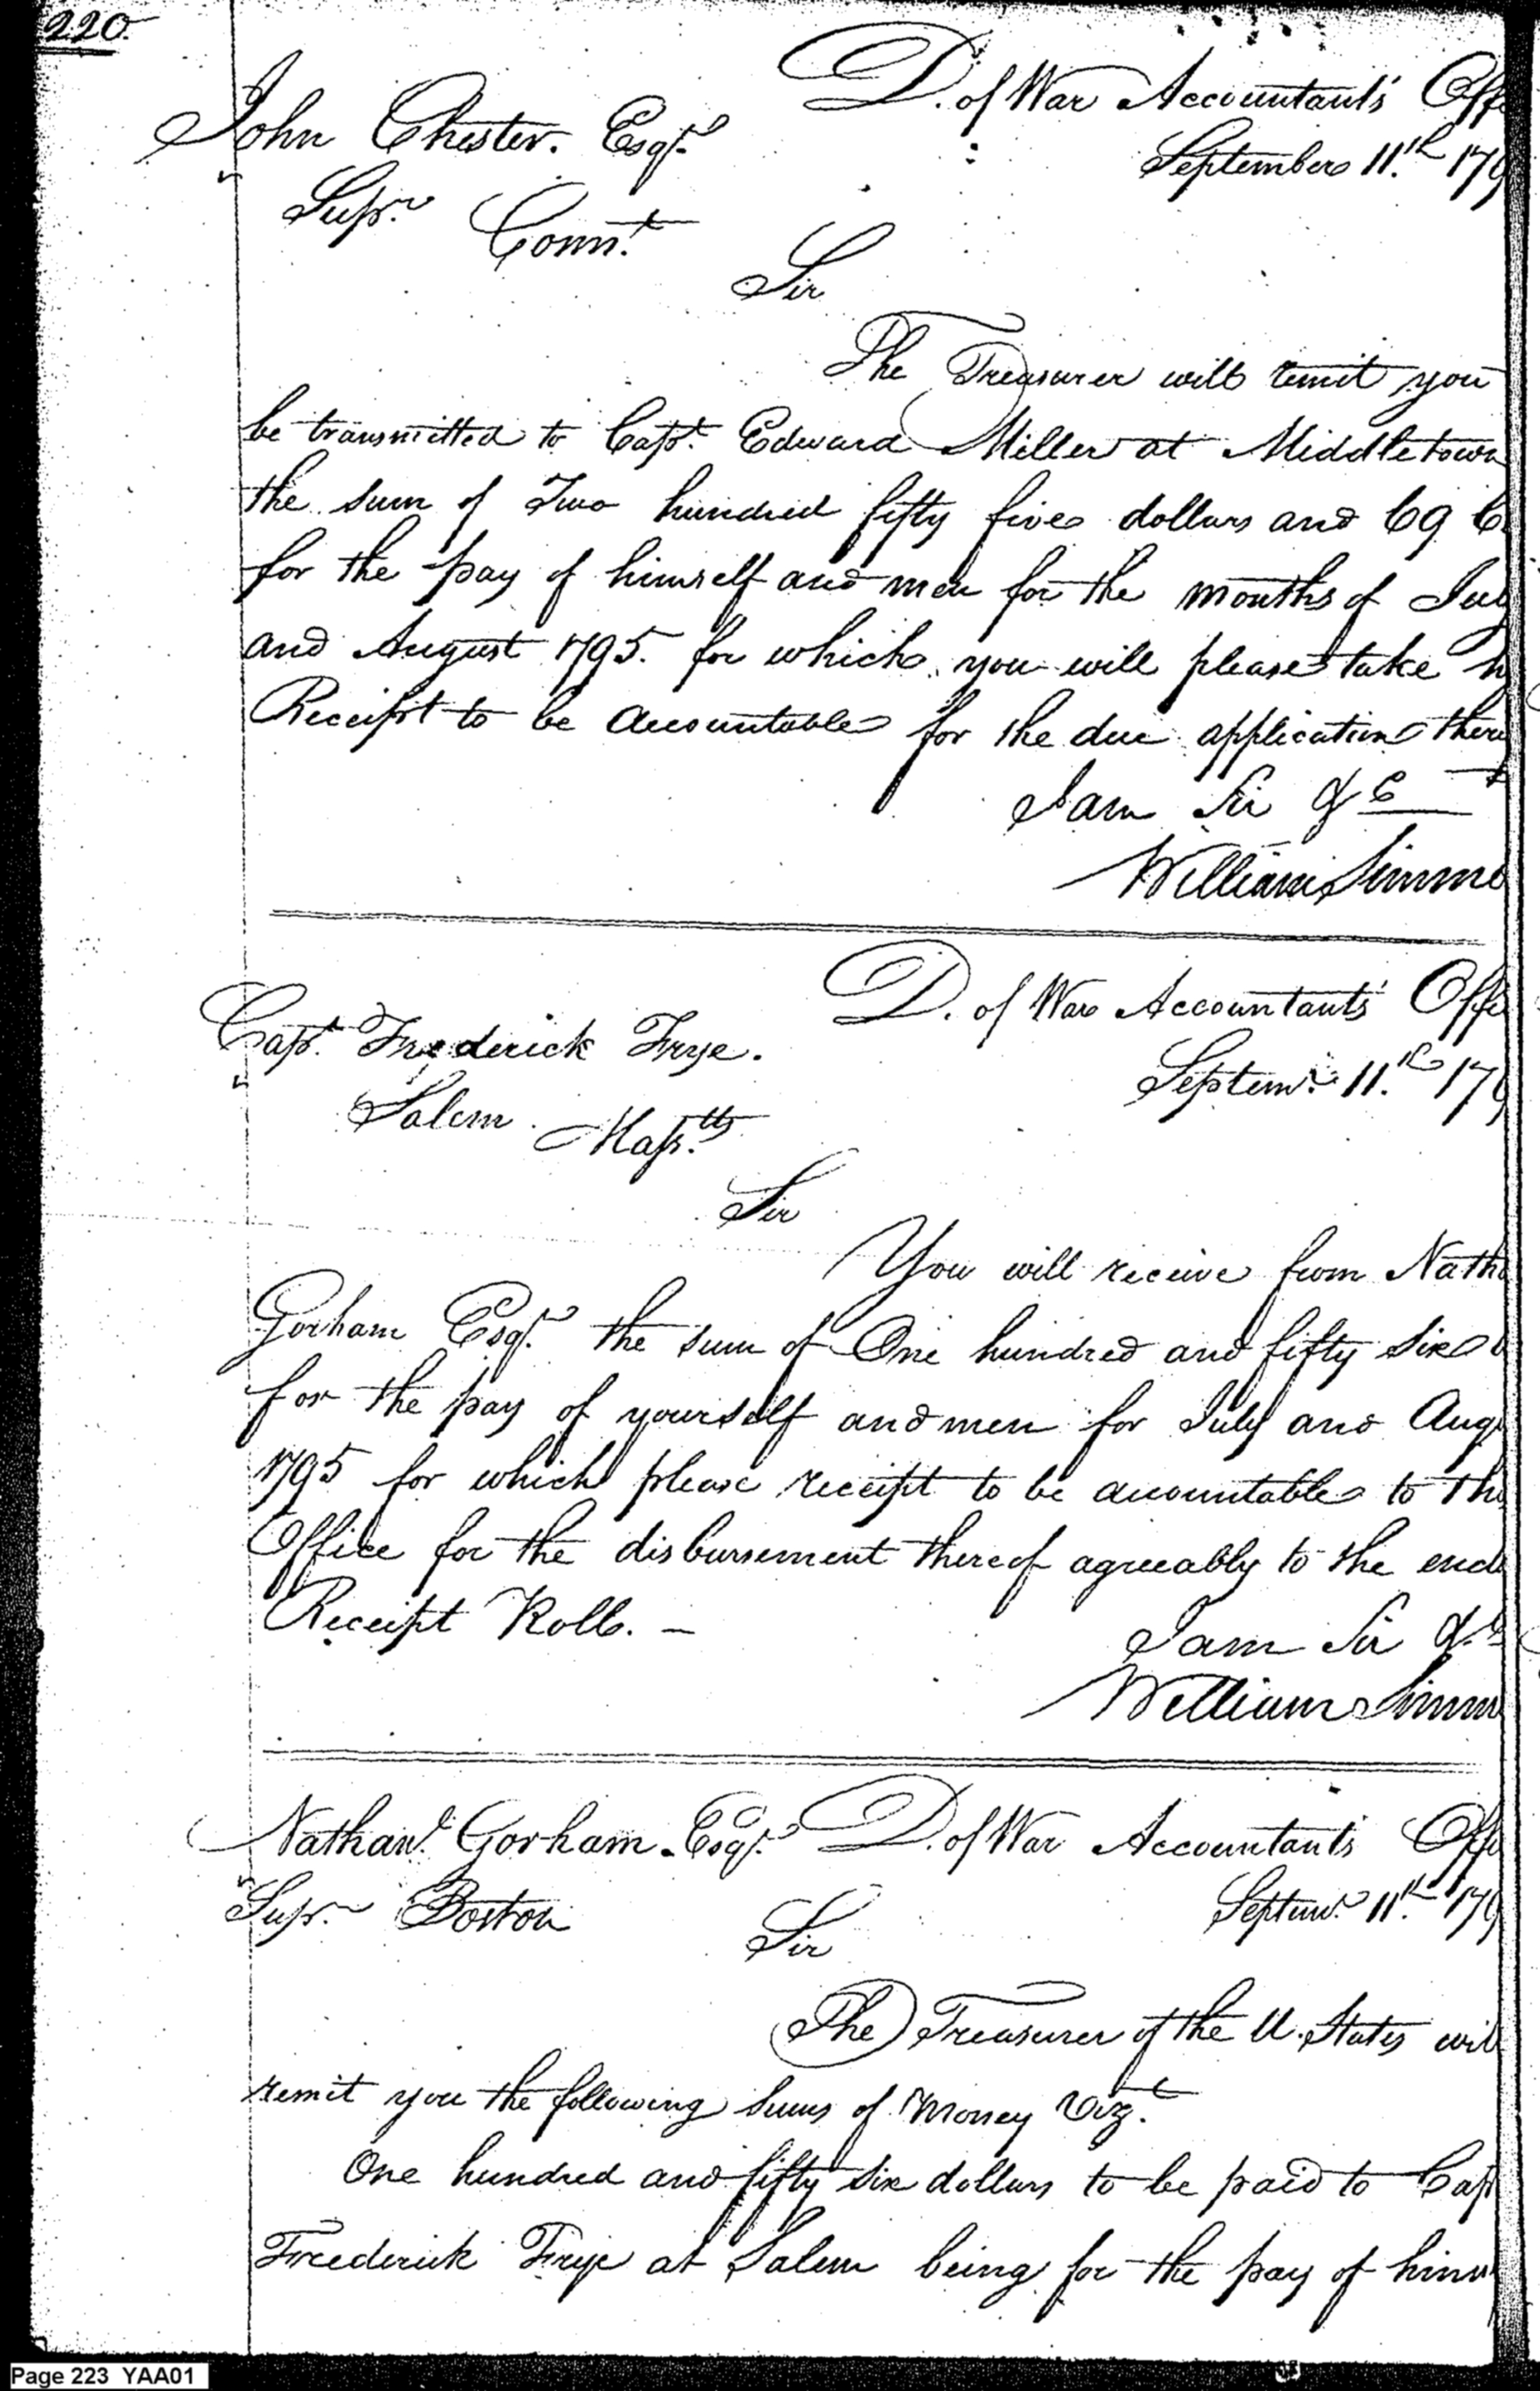 220.
D. of War Accountants' Offi
John Chester. Esqr.
September 11.th 179
Supr. Connt.
Sir
The Treasurer will remit you
be transmitted to Capt. Edward Miller at Middletown
the sum of Two hundred fifty five dollars and 69 C
for the pay of himself and men for the months of Jul
and August 1795. for which you will please take h
Receipt to be accountable for the due application there
I am Sir &c
William Simmo
D. of War Accountants' Offi
Capt. Frederick Frye.
Septemr. 11.th 179
Salem. Massts.
Sir
You will receive from Natha
Gorham Esqr. the sum of One hundred and fifty six
for the pay of yourself and men for July and Aug
1795 for which please receipt to be accountable to th
Office for the disbursement thereof agreeably to the encl
Receipt Roll. —
I am Sir &c
William Simm
Nathanl. Gorham Esqr. D. of War Accountants Offi
Supr. Boston
Septemr. 11th. 179
Sir
The Treasurer of the U. States wil
remit you the following sums of Money Vizt.
One hundred and fifty six dollars to be paid to Cap
Frederick Frye at Salem being for the pay of hims
Page 223 YAA01